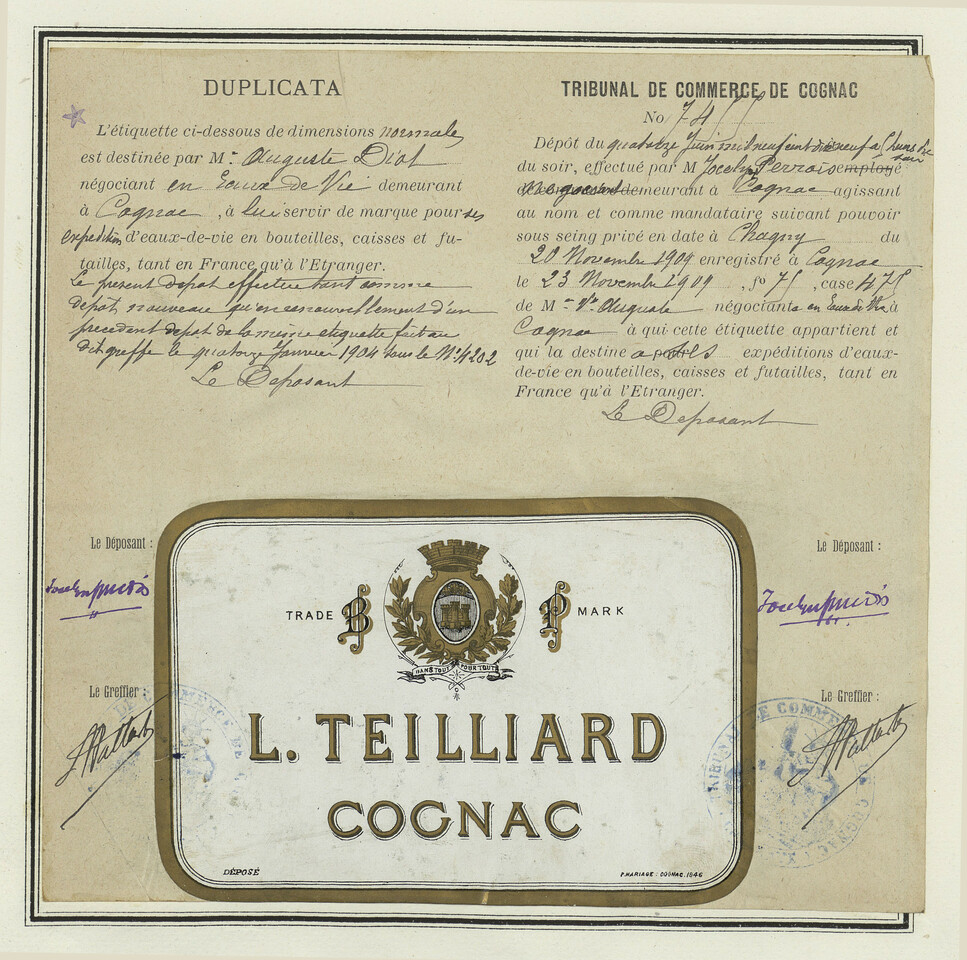 DUPLICATA
L'étiquette ci-dessous de dimensions normales
est destinée par Mr Auguste Diot
négociant en Eaux de Vie demeurant
à Cognac, à lui servir de marque pour ses
expéditions d'eaux-de-vie en bouteilles, caisses et fu-
tailles, tant en France qu'à l'Etranger.
Le présent dépot effectué tant comme
dépot nouveau qu'en renouvellement d'un
précédent dépot de la même étiquette fait au
dit greffe le quatorze Janvier 1904 sous le No 4202
Le Déposant
TRIBUNAL DE COMMERCE DE COGNAC
No 7455
Dépôt du quatorze Juin mil neuf cent dix neuf à
du soir, effectué par M Jocelyn Perrois employé
demeurant à Cognac agissant
au nom et comme mandataire suivant pouvoir
sous seing privé en date à Chagny du
20 Novembre 1909 enregistré à Cognac
le 23 Novembre 1909, fo 75, case 475
de M Auguste négociant en Eaux de Vie à
Cognac à qui cette étiquette appartient et
qui la destine à ses expéditions d'eaux-
de-vie en bouteilles, caisses et futailles, tant en
France qu'à l'Etranger.
Le Déposant
Le Déposant :
Le Déposant :
Le Greffier :
Le Greffier :
TRADE B P MARK
DANS TOUT POUR TOUT
L. TEILLIARD
COGNAC
DÉPOSÉ
P. MARIAGE : COGNAC. 1846
TRIBUNAL DE COMMERCE DE COGNAC